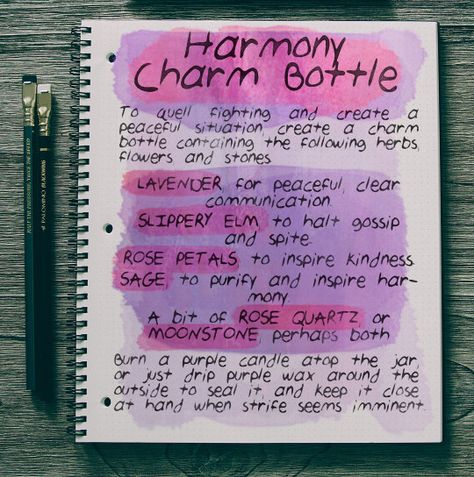 Harmony
Charm Bottle
To quell fighting and create a
peaceful situation, create a charm
bottle containing the following herbs,
flowers and stones
LAVENDER, for peaceful, clear
communication.
SLIPPERY ELM to halt gossip
and spite.
ROSE PETALS to inspire kindness.
SAGE, to purify and inspire har-
mony.
A bit of ROSE QUARTZ, or
MOONSTONE, perhaps both
Burn a purple candle atop the jar,
or just drip purple wax around the
outside to seal it, and keep it close
at hand when strife seems imminent.